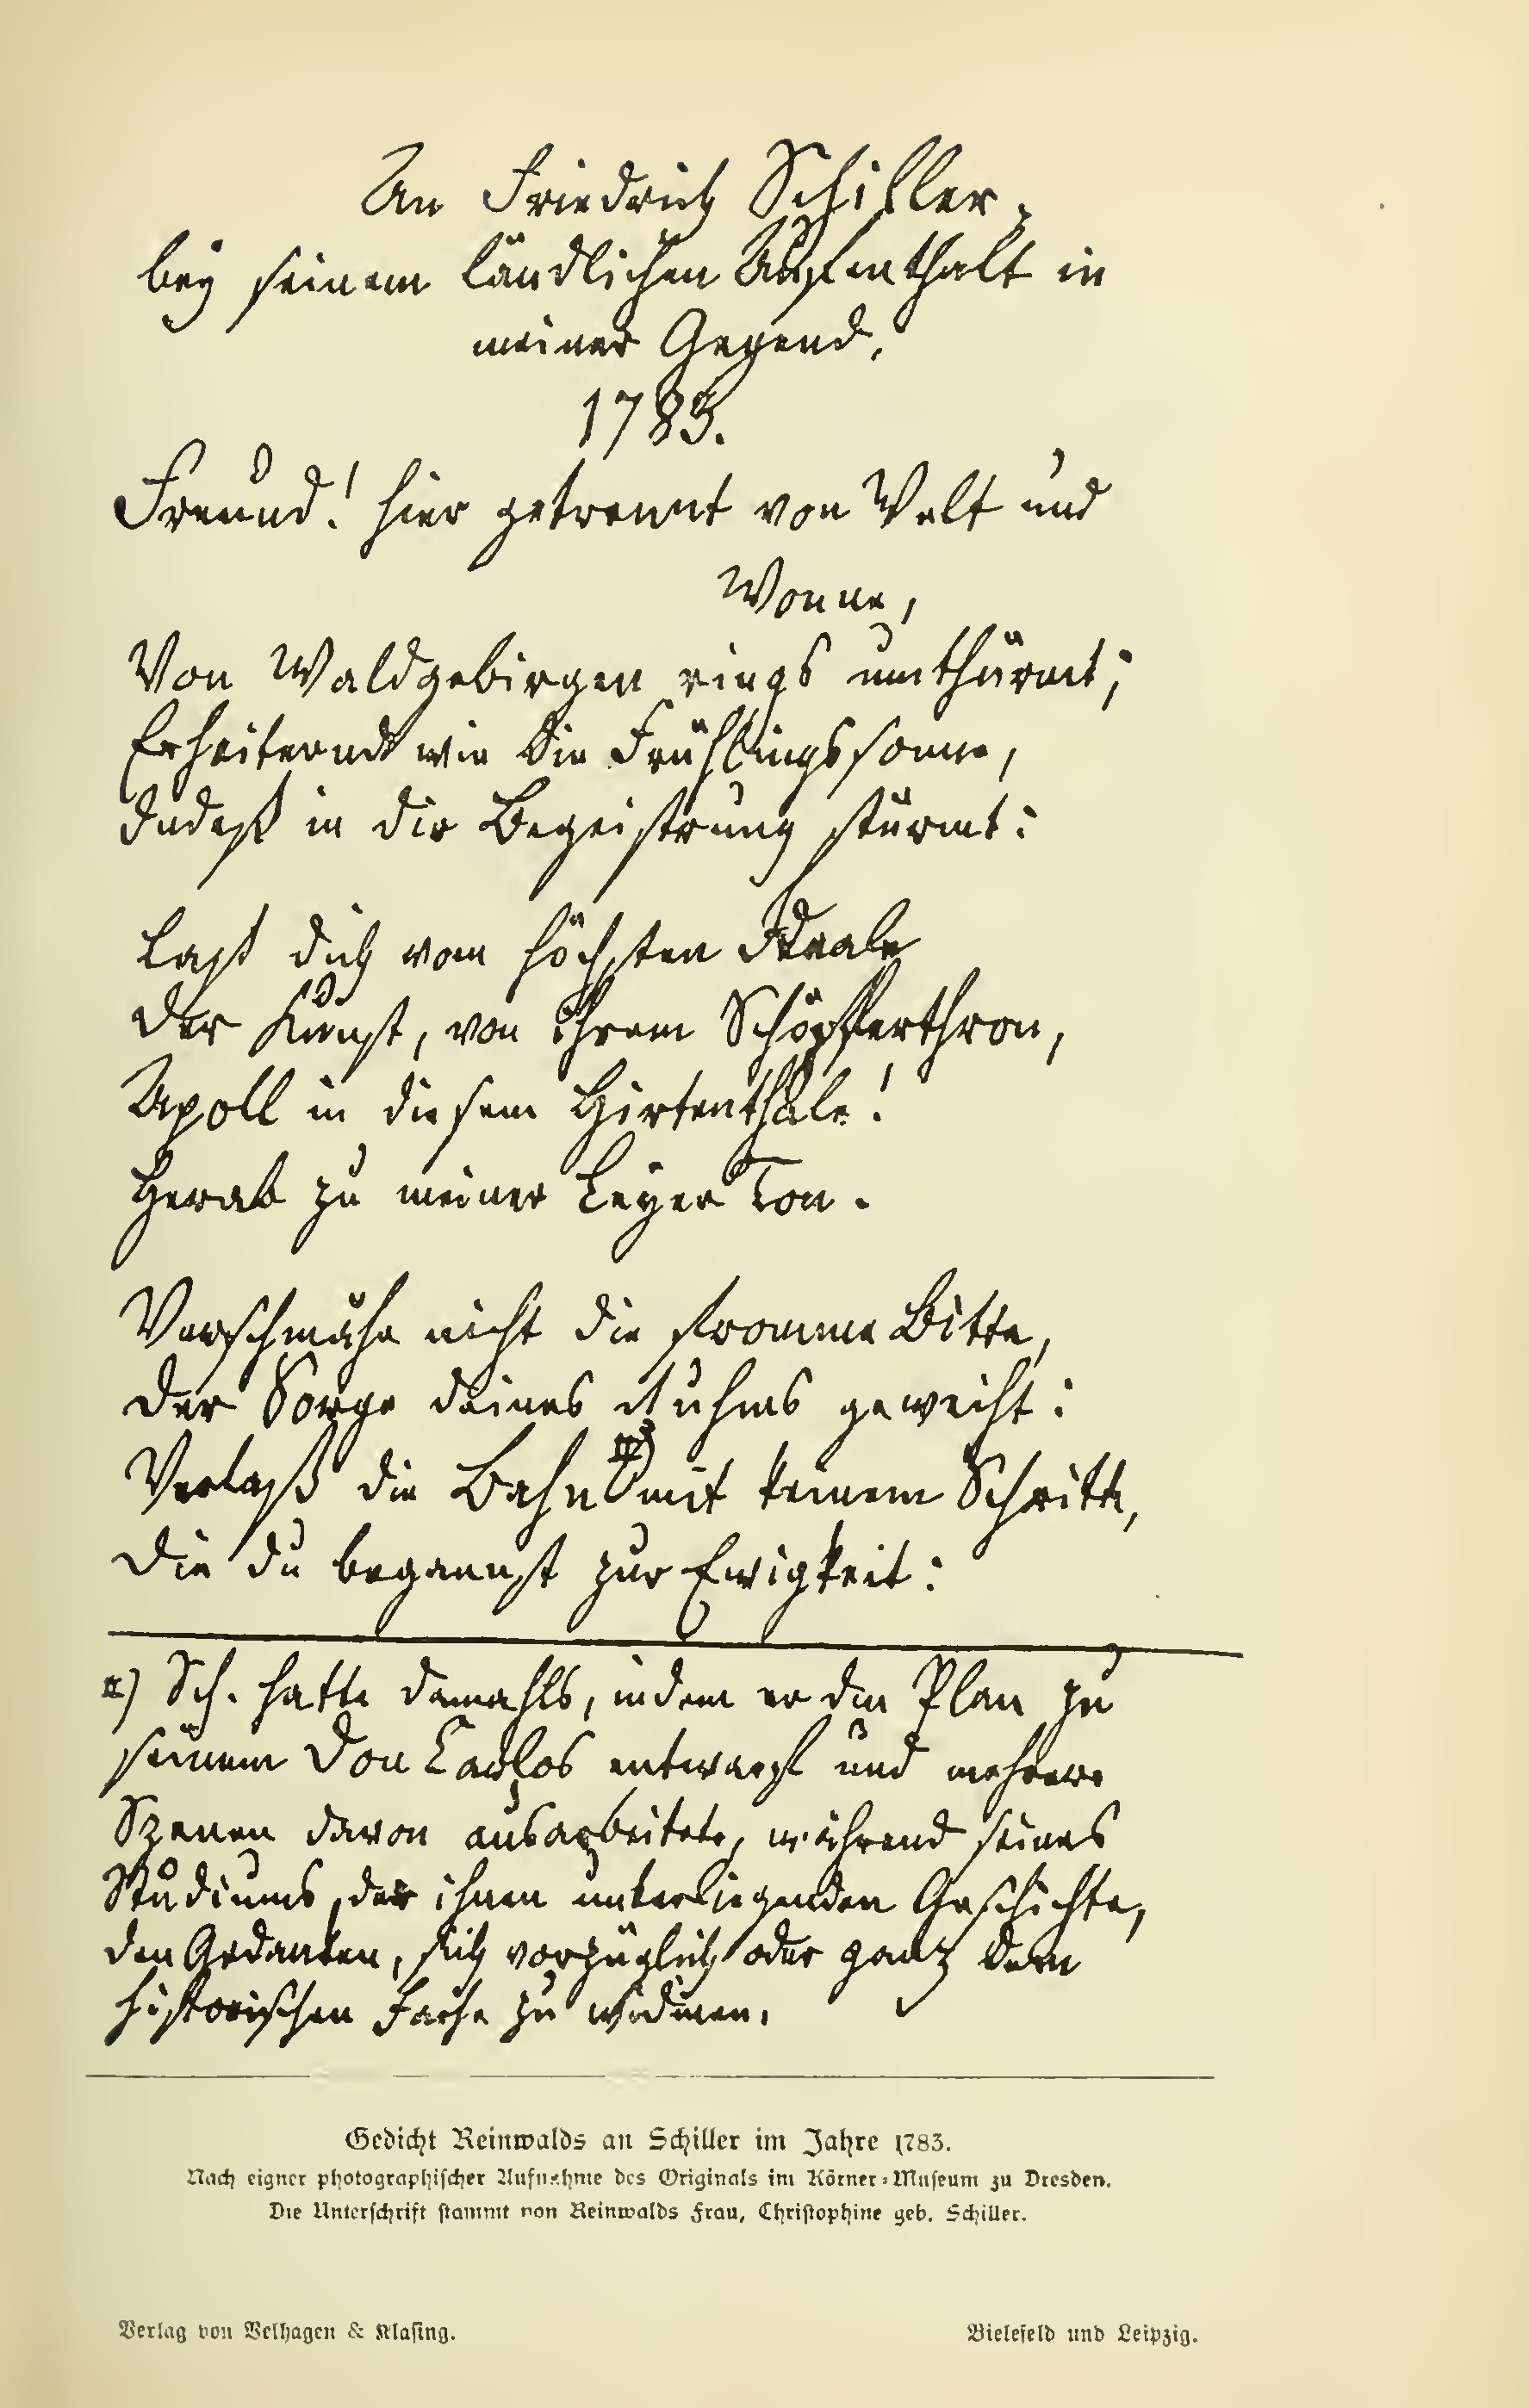 An Friedrich Schiller,
bey seinem ländlichen Aufenthalt in
meiner Gegend.
1783.
Freund! hier getrennt von Welt und
Wonne,
Von Waldgebirgen rings umthürmt;
Erheiternd wie die Frühlingssonne,
Indeß in dir Begeistrung stürmt:
Laß dich vom höchsten Ideale
Der Kunst, von ihrem Schöpferthron,
Apoll in diesem Hirtenthale!
Herab zu meiner Leyer Ton.
Verschmähe nicht die fromme Bitte,
Der Sorge deines Ruhms geweiht:
Verlaß die Bahn *) mit keinem Schritte,
Die du begannst zur Ewigkeit:
*) Sch. hatte damahls, indem er den Plan zu
seinem Don Carlos entwarf und mehrere
Szenen davon ausarbeitete, während seines
Studiums der ihnen unterliegenden Geschichte,
den Gedanken, sich vorzüglich oder ganz dem
historischen Fache zu widmen.
Gedicht Reinwalds an Schiller im Jahre 1783.
Nach eigner photographischer Aufnahme des Originals im Körner-Museum zu Dresden.
Die Unterschrift stammt von Reinwalds Frau, Christophine geb. Schiller.
Verlag von Velhagen & Klasing. Bielefeld und Leipzig.